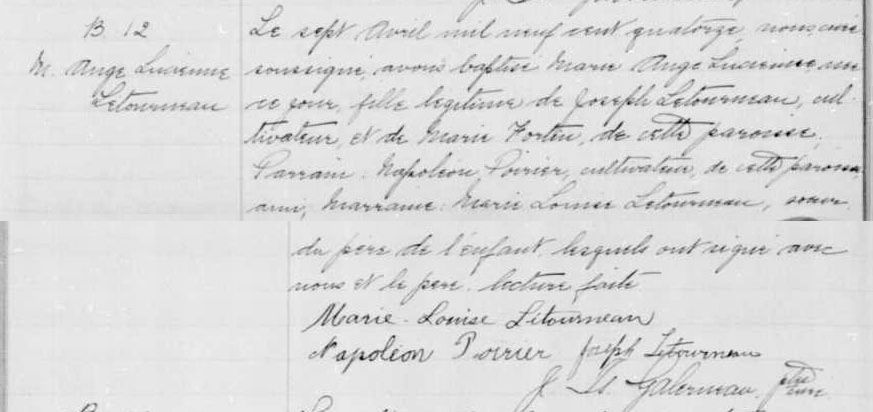 B. 12
M. Ange Lucienne
Letourneau
Le sept Avril mil neuf cent quatorze, nous curé
soussigné, avons baptisé Marie Ange Lucienne, née
ce jour, fille légitime de Joseph Letourneau, cul-
tivateur, et de Marie Fortin, de cette paroisse.
Parrain: Napoléon Poirier, cultivateur, de cette paroisse,
ami, Marraine: Marie Louise Letourneau, soeur
du père de l'enfant, lesquels ont signé avec
nous et le père. Lecture faite
Marie-Louise Létourneau
Napoléon Poirier Joseph Letourneau
J. Ls. Galerneau ptre curé